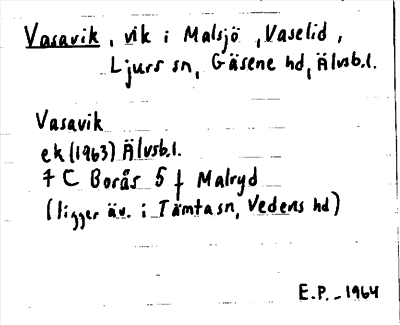 Vasavik, vik i Malsjö, Vaselid,
Ljurs sn, Gäsene hd, Älvsb.l.
Vasavik
ek (1963) Älvsb.l.
7 C Borås 5 f Malryd
(ligger äv. i Tämta sn, Vedens hd)
E.P. - 1964